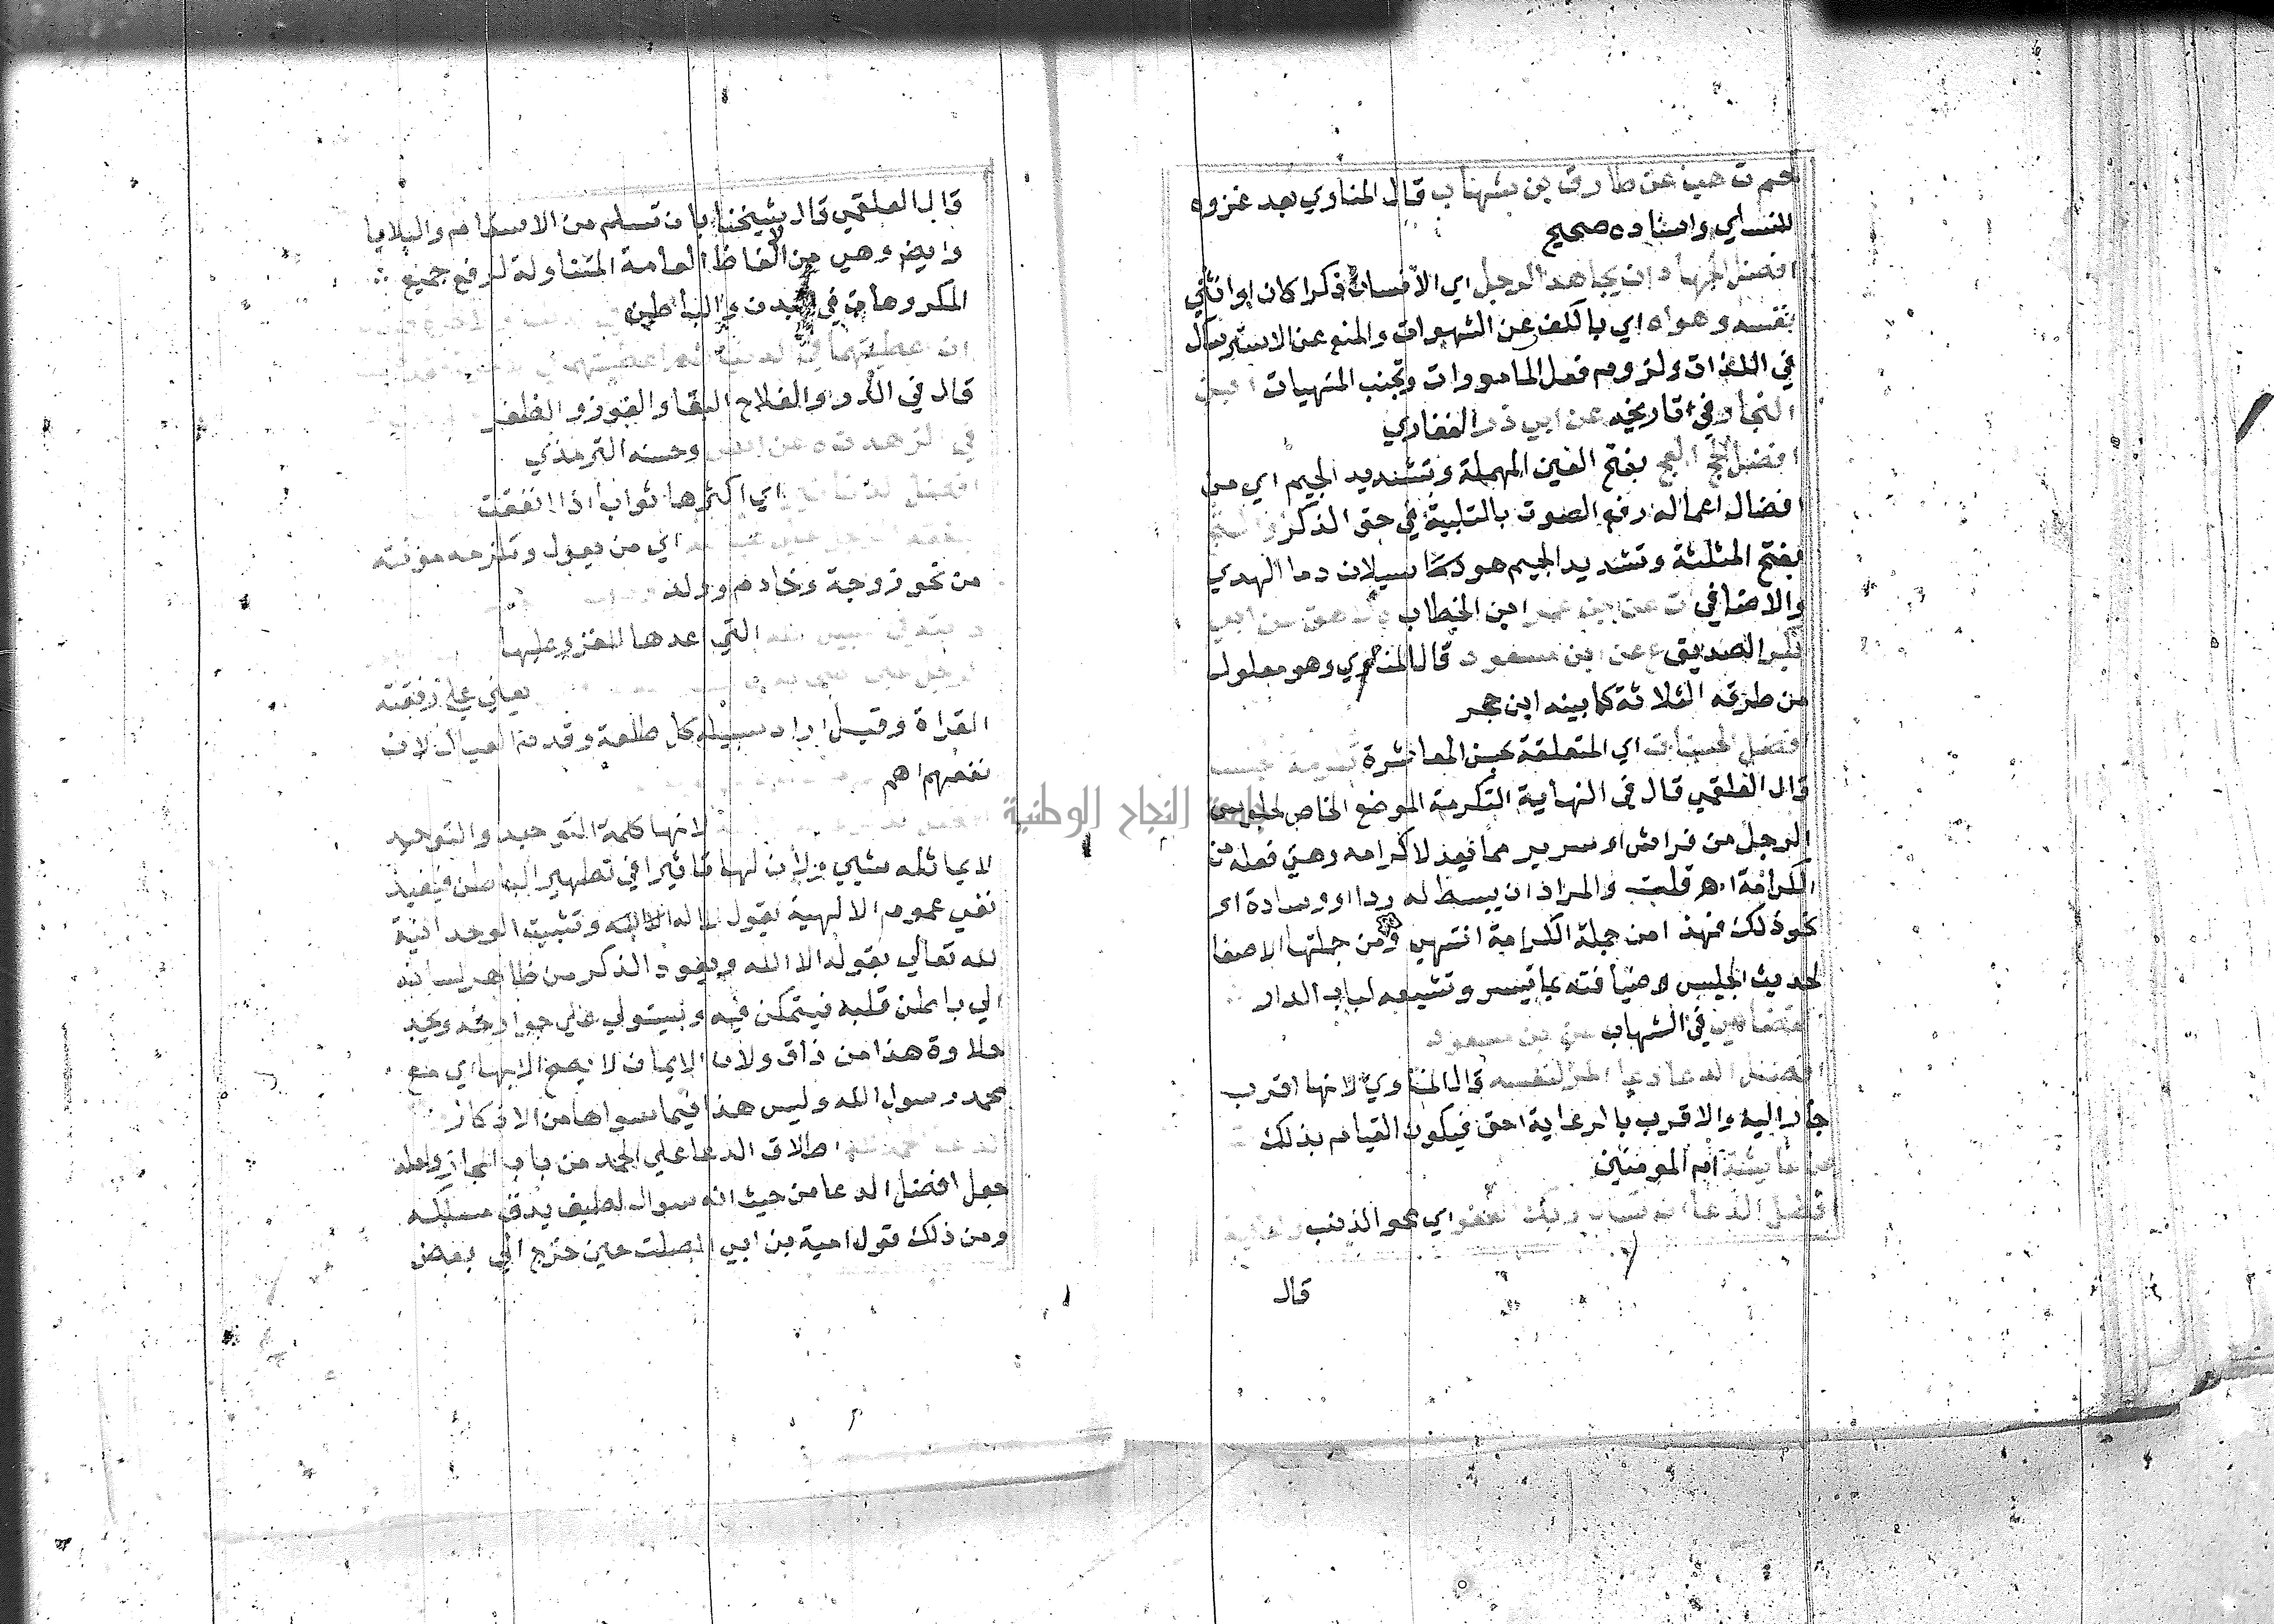 حم ن هب عن طارق بن شهاب قال المناوي بعد عزوه
للنساي واسناده صحيح
افضل الجهاد ان يجاهد الرجل اي الانسان ذكرا كان او انثي
نفسه وهواه اي بالكف عن الشهوات والمنع عن الاسترسال
في اللذات ولزوم فعل المامورات وتجنب المنهيات ابن
النجار في تاريخه عن ابي ذر الغفاري
افضل الحج العج بفتح العين المهملة وتشديد الجيم اي من
افضال اعماله رفع الصوت بالتلبية في حق الذكر والثج
بفتح المثلثة وتشديد الجيم هو سيلان دما الهدي
والاضاحي ت عن ابن عمر ابن الخطاب ه ك هق عن ابي
بكر الصديق ع عن ابن مسعود قال المناوي وهو معلول
من طرقه الثلاثة كما بينه ابن حجر
افضل الحسنات اي المتعلقة بحسن المعاشرة تكرمة
قال العلقمي قال في النهاية التكرمة الموضع الخاص لجلوس
الرجل من فراش او سرير مما يعد لاكرامه وهي تفعلة من
الكرامة اهـ قلت والمراد ان يبسط له ردا او وسادة او
نحو ذلك فهذا من جملة الكرامة انتهي ومن جملتها الاصغا
لحديث الجليس وضيافته بما تيسر وتشييعه لباب الدار
القضاعي في الشهاب عن ابن مسعود
افضل الدعا دعا المر لنفسه قال المناوي لانها اقرب
جار اليه والاقرب بالرعاية احق فيكون القيام بذلك
عن عايشة ام المومنين
افضل الدعا ان تسال ربك العفو اي محو الذنب والعافية
قال
قال العلقمي قال شيخنا بان تسلم من الاسقام والبلايا
وايض وهي من الالفاظ العامة المتناولة لدفع جميع
المكروهات في البدن والباطن
قال في الدر والفلاح البقا والفوز والظفر
في الزهد ت ه عن انس وحسنه الترمذي
اي اكثرها ثوابا اذا انفقت
اي من يعول وتلزمه مونته
من نحو زوجة وخادم وولد
التي اعدها للغزو عليها
يعني علي رفقته
الغزاة وقيل اراد سبيله كل طاعة وقدم العيال لان
نفعهم اهم
لانها كلمة التوحيد والتوحيد
لا يماثله شيي ولان لها تاثيرا في تطهير الباطن فيفيد
نفي عموم الالهية بقول لا اله الا الله وتثبيت الوحدانية
لله تعالي بقوله الا الله ويعود الذكر من ظاهر لسانه
الي باطن قلبه فيتمكن فيه ويستولي علي جوارحه ويجد
حلاوة هذا من ذاق ولان الايمان لا يصح الا بها اي مع
محمد رسول الله وليس هذا فيما سواها من الاذكار
اطلاق الدعا علي الحمد من باب المجاز ولعله
جعل افضل الدعا من حيث انه سوال لطيف يدق مسلكه
ومن ذلك قول امية بن ابي الصلت حين خرج الي بعض
جامعة النجاح الوطنية